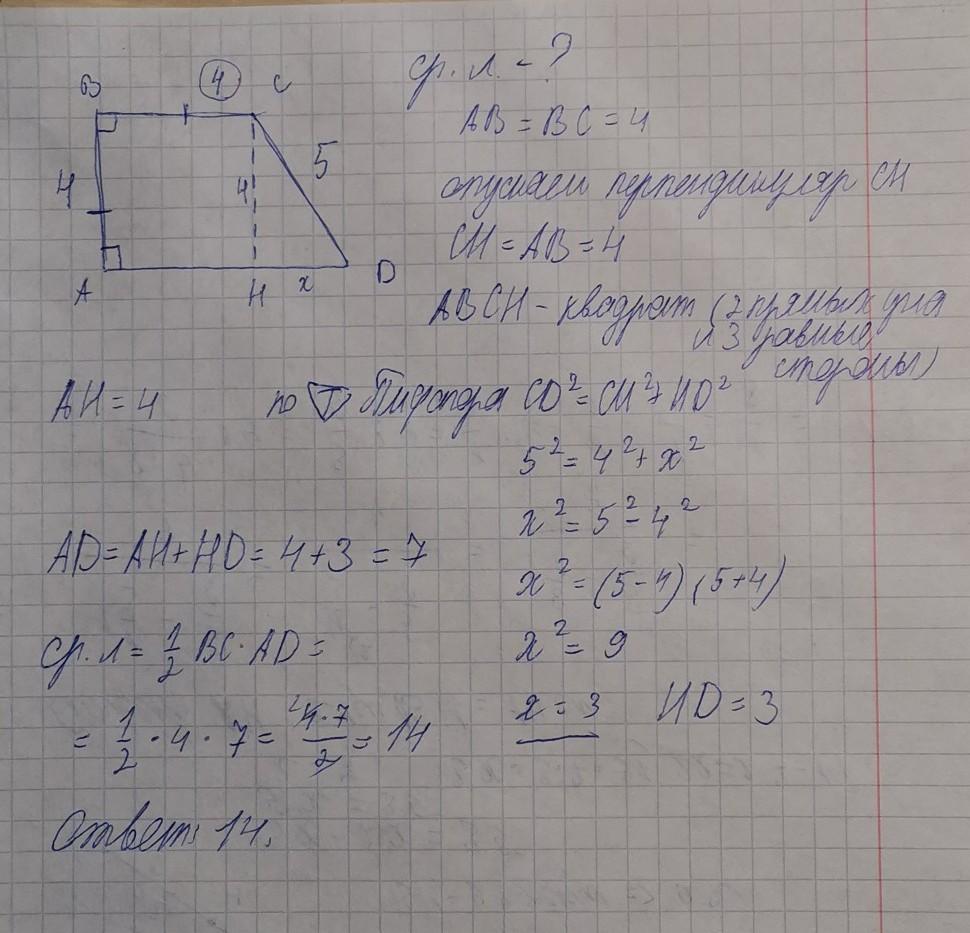 B 4 C
4 4 5
A H x D
ср. л. - ?
AB = BC = 4
опускаем перпендикуляр CH
CH = AB = 4
ABCH - квадрат (2 прямых угла
и 3 равные
стороны)
AH = 4
по Т Пифагора CD² = CH² + HD²
5² = 4² + x²
x² = 5² - 4²
x² = (5-4)(5+4)
x² = 9
x = 3 HD = 3
AD = AH + HD = 4 + 3 = 7
ср. л = 1/2 BC · AD =
= 1/2 · 4 · 7 = 4·7/2 = 14
Ответ: 14.